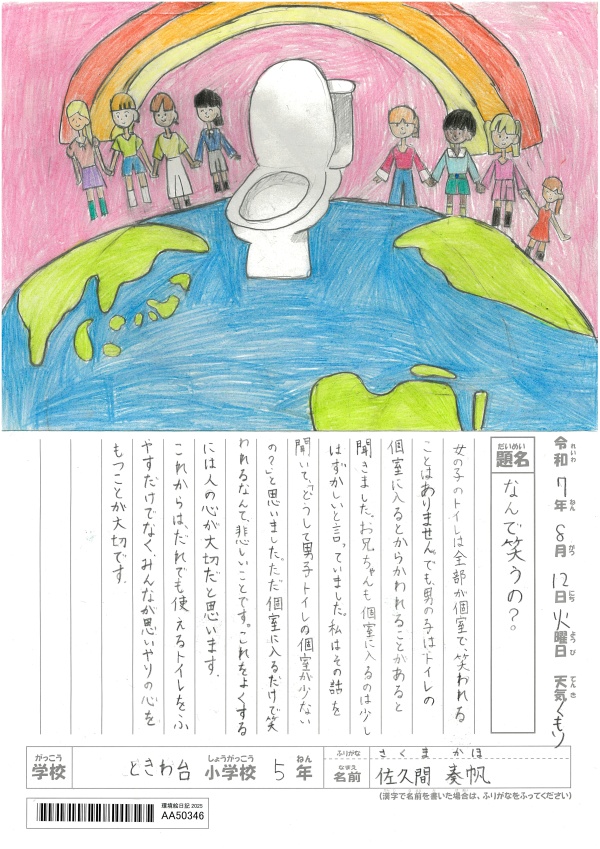 令和7年8月12日火曜日 天気くもり
れいわ ねん がつ にち ようび てんき
だいめい
題名 なんで笑うの?。
女の子のトイレは全部が個室で、笑われる
ことはありません。でも男の子はトイレの
個室に入るとからかわれることがあると
聞きました。お兄ちゃんも個室に入るのは少し
はずかしいと言っていました。私はその話を
聞いて、「どうして男子トイレの個室が少ない
の?」と思いました。ただ個室に入るだけで笑
われるなんて、悲しいことです。これをよくする
には人の心が大切だと思います。
これからは、だれでも使えるトイレをふ
やすだけでなく、みんなが思いやりの心を
もつことが大切です。
がっこう しょうがっこう ねん
学校 ときわ台 小学校 5年
ふりがな さくま かほ
なまえ
名前 佐久間 奏帆
(漢字で名前を書いた場合は、ふりがなをふってください)
環境絵日記 2025
AA50346